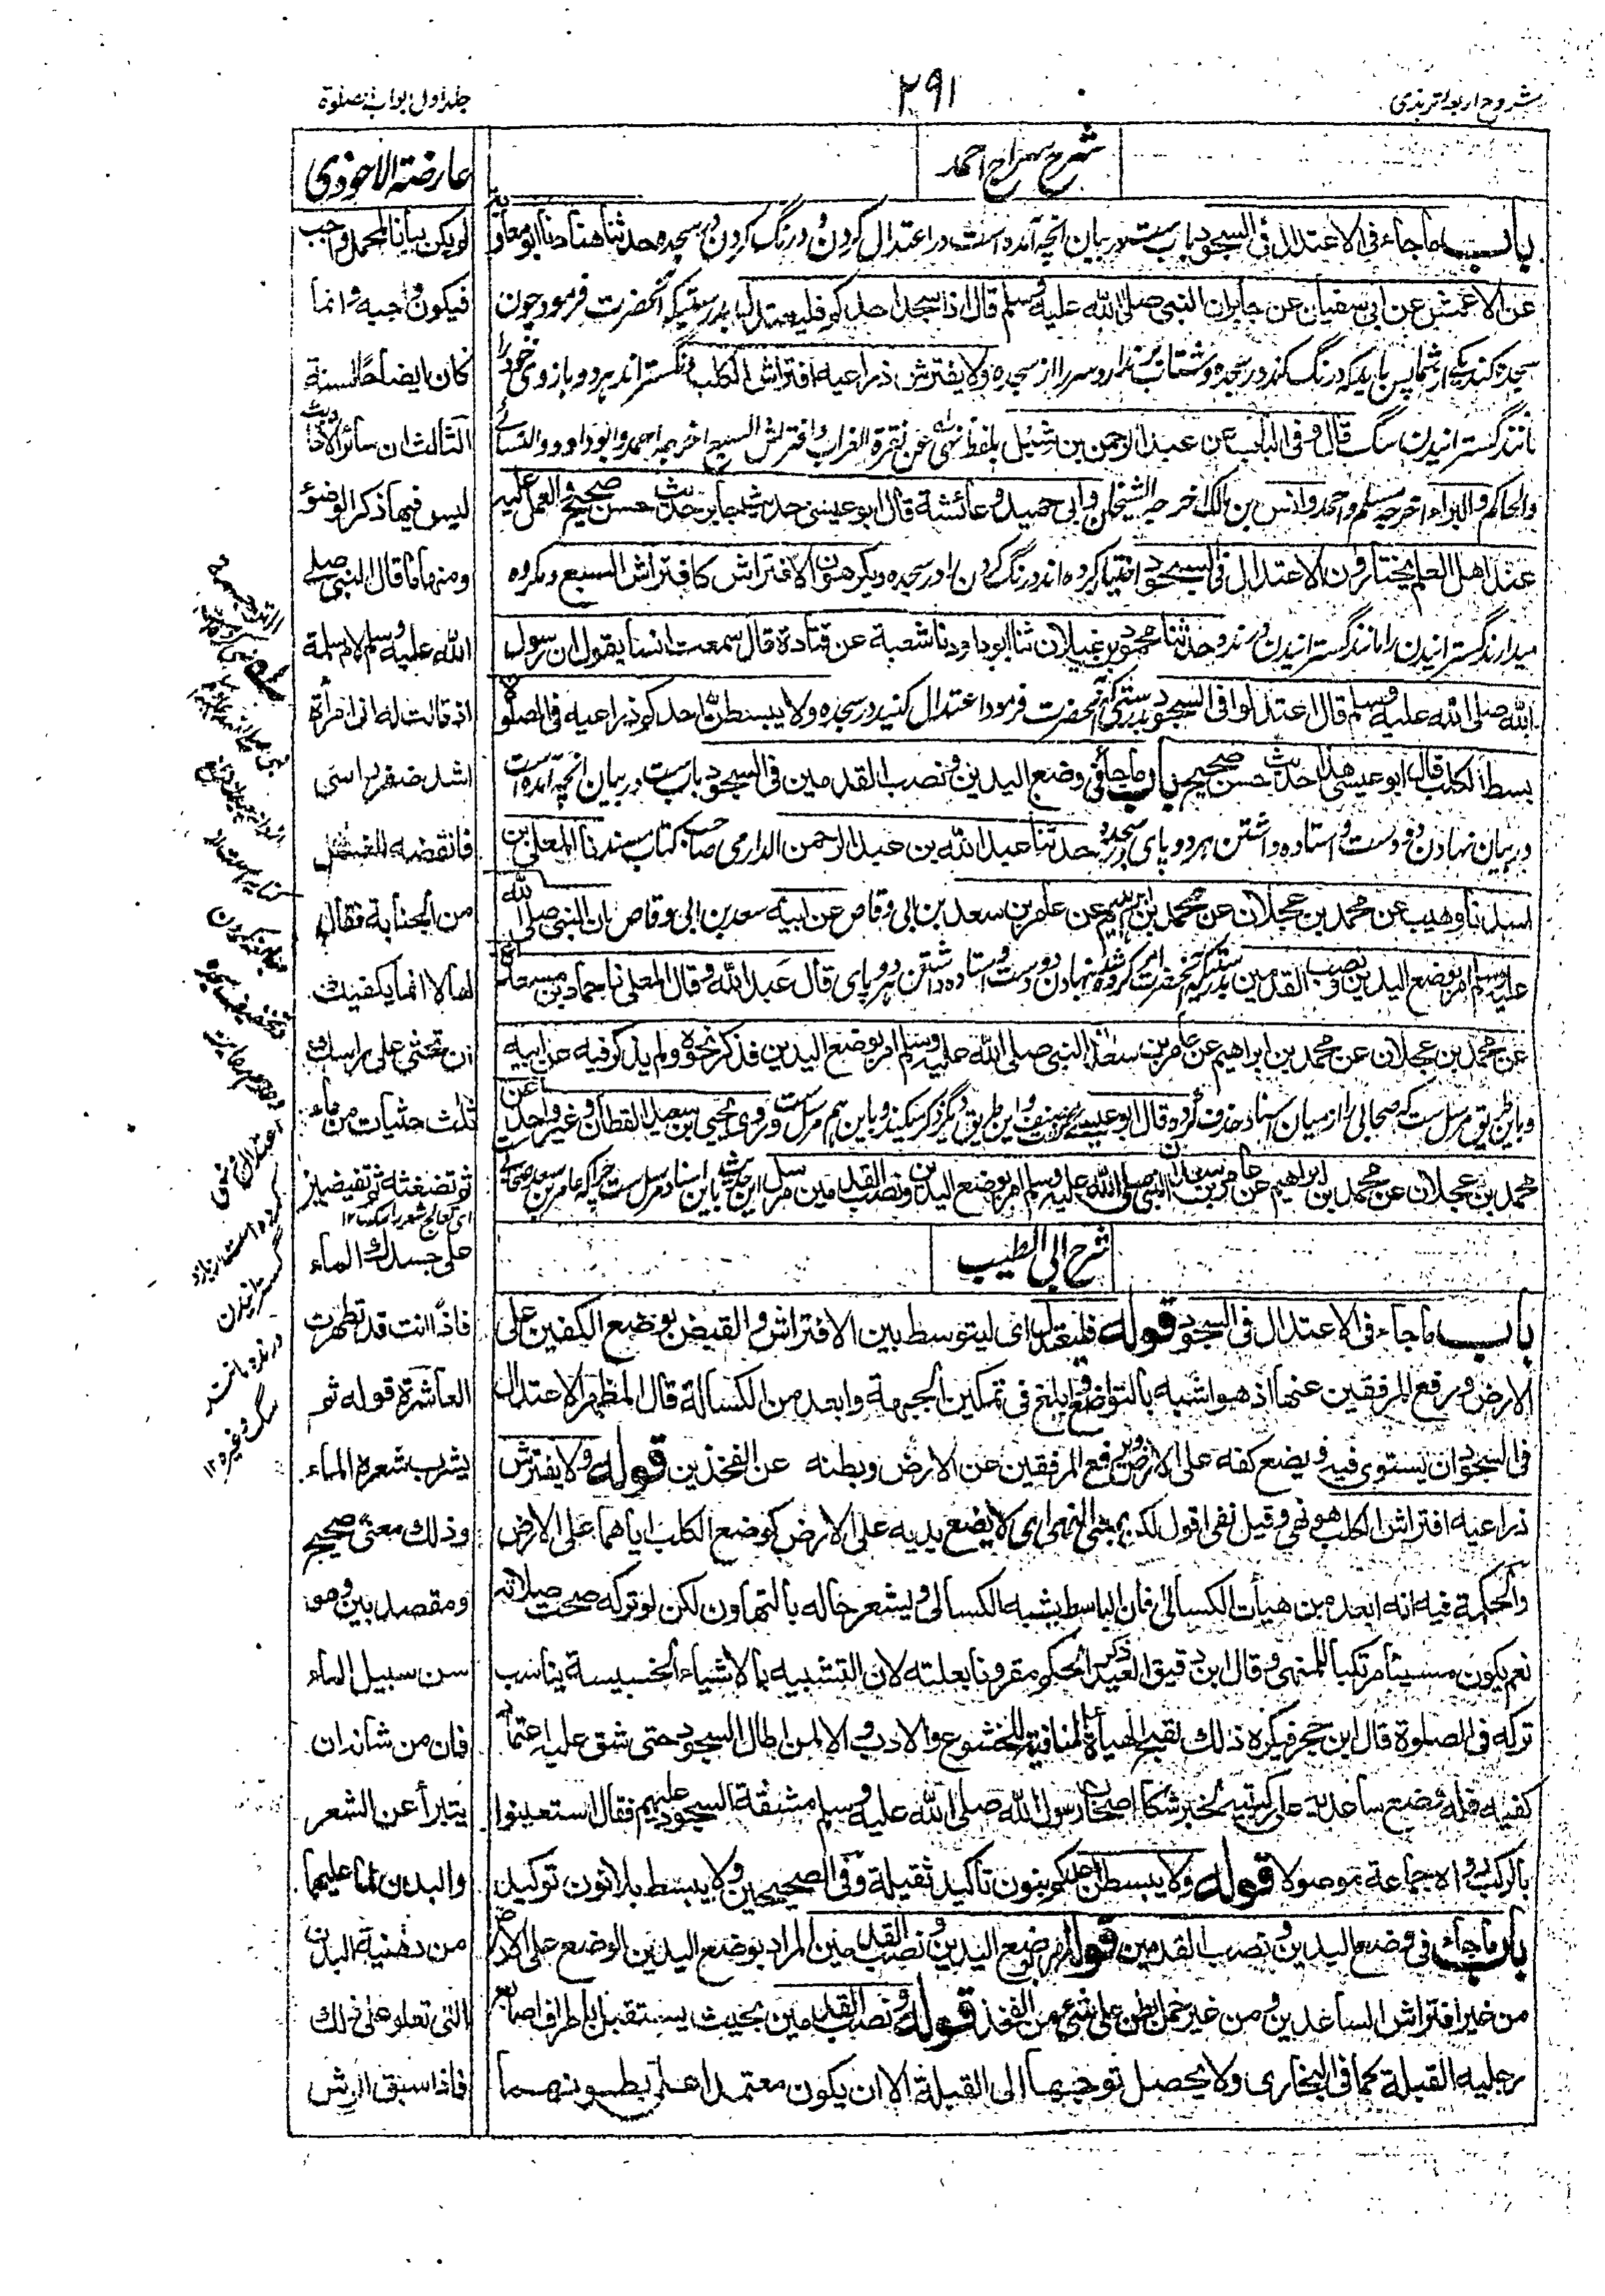 شروح اربعه ترمذی
۲۹۱
جلد اول ابواب الصلوة
شرح سراج احمد
باب ما جاء فی الاعتدال فی السجود باب ست در بیان آنچه آمده است در اعتدال کردن و درنگ کردن در سجده حدثنا هناد نا ابو معاویة
عن الاعمش عن ابی سفیان عن جابر ان النبی صلی الله علیه وسلم قال اذا سجد احدکم فلیعتدل بدرستیکه آنحضرت فرمود چون
سجده کند یکے از شما پس باید که درنگ کند در سجده و شتاب بر ندارد سر را از سجده ولا یفترش ذراعیه افتراش الکلب و نگستراند هر دو بازوی خود را
مانند گسترانیدن سگ قال وفی الباب عن عبد الرحمن بن شبل بلفظ نهی عن نقرة الغراب وافتراش السبع اخرجه احمد وابوداود والنسائے
والحاکم والبراء اخرجه مسلم واحمد وانس بن مالک اخرجه الشیخان وابی حمید وعائشة قال ابو عیسی حدیث جابر حدیث حسن صحیح والعمل علیه
عند اهل العلم یختارون الاعتدال فی السجود اختیار کرده اند درنگ کردن در سجده ویکرهون الافتراش کافتراش السبع و مکروه
میدارند گسترانیدن را مانند گسترانیدن درنده حدثنا محمود بن غیلان ثنا ابو داود نا شعبة عن قتادة قال سمعت انسا یقول ان رسول
الله صلی الله علیه وسلم قال اعتدلوا فی السجود بدرستیکه آنحضرت فرمود اعتدال کنید در سجده ولا یبسطن احدکم ذراعیه فی الصلوة
بسط الکلب قال ابو عیسی هذا حدیث حسن صحیح باب ما جاء فی وضع الیدین ونصب القدمین فی السجود باب ست در بیان آنچه آمده است
در بیان نهادن دو دست و استاده داشتن هر دو پای در سجده حدثنا عبد الله بن عبد الرحمن الدارمی صاحب کتاب مسند نا المعلی بن
اسد نا وهیب عن محمد بن عجلان عن محمد بن ابراهیم عن عامر بن سعد بن ابی وقاص عن ابیه سعد بن ابی وقاص ان النبی صلی الله
علیه وسلم امر بوضع الیدین ونصب القدمین بدرستیکه آنحضرت امر کرده شد نهادن دو دست و استاده داشتن هر دو پای قال عبد الله وقال المعلی نا حماد بن مسعدة
عن محمد بن عجلان عن محمد بن ابراهیم عن عامر بن سعد ان النبی صلی الله علیه وسلم امر بوضع الیدین فذکر نحوه ولم یذکر فیه عن ابیه
و باین طریق مرسل ست که صحابی را از میان اسناد حذف کرده قال ابو عیسی و این طریق دیگر ذکر میکند و باین هم مرسل ست وروی یحیی بن سعید القطان وغیر واحد عن
محمد بن عجلان عن محمد بن ابراهیم عن عامر بن سعد ان النبی صلی الله علیه وسلم امر بوضع الیدین ونصب القدمین مرسل این حدیث باین اسناد مرسل ست چراکه عامر بن سعد صحابی
شرح ابی الطیب
باب ما جاء فی الاعتدال فی السجود قوله فلیعتدل ای لیتوسط بین الافتراش والقبض بوضع الکفین علی
الارض ورفع المرفقین عنها اذ هو اشبه بالتواضع وابلغ فی تمکین الجبهة وابعد من الکسالة قال المظهر الاعتدال
فی السجود ان یستوی فیه ویضع کفه علی الارض ویرفع المرفقین عن الارض وبطنه عن الفخذین قوله ولا یفترش
ذراعیه افتراش الکلب هو نهی وقیل نفی اقول لکن بمعنی النهی ای لا یضع یدیه علی الارض کوضع الکلب ایاهما علی الارض
والحکمة فیه انه ابعد من هیأت الکسالی فان الباسط یشبه الکسالی ویشعر حاله بالتهاون لکن لو ترکه صحت صلاته
نعم یکون مسیئا مرتکبا للمنهی وقال ابن دقیق العید ذکر الحکم مقرونا بعلته لان التشبیه بالاشیاء الخسیسة یناسب
ترکه فی الصلوة قال ابن حجر فیکره ذلک لقبح الهیأة المنافیة للخشوع والادب الا لمن اطال السجود حتی شق علیه اعتماد
کفیه فله وضع ساعدیه علی رکبتیه لخبر شکا اصحاب رسول الله صلی الله علیه وسلم مشقة السجود علیهم فقال استعینوا
بالرکب رواه الاجماعة موصولا قوله ولا یبسطن احدکم بنون تأکید ثقیلة وفی الصحیحین ولا یبسط بلا نون توکید
باب ما جاء فی وضع الیدین ونصب القدمین قوله امر بوضع الیدین ونصب القدمین المراد بوضع الیدین الوضع علی الارض
من غیر افتراش الساعدین ومن غیر حمل البطن علی شیء من الفخذ قوله ونصب القدمین بحیث یستقبل باطراف اصابع
رجلیه القبلة کما فی البخاری ولا یحصل توجیهها الی القبلة الا ان یکون معتمدا علی بطونهما
عارضة الاحوذی
لو یکن بیانا لمحمل واجب
فیکون واجبه وانما
کان ایضاحا لسنة
الثالث ان سائر الاحادیث
لیس فیها ذکر الوضوء
ومنها ما قال النبی صلی
الله علیه وسلم لام سلمة
اذ قالت له انی امرأة
اشد ضفر راسی
فانقضه للغسل
من الجنابة فقال
لها لا انما یکفیک
ان تحثی علی راسک
ثلث حثیات من ماء
ثم تضغثه ثم تفیضین
علی جسدک الماء
فاذا انت قد تطهرت
العاشرة قوله ثم
یشرب شعره الماء
وذلک معنی صحیح
ومقصد بین وهو
سن سبیل الماء
فان من شانه ان
یتبرأ عن الشعر
والبدن لما علیهما
من دهنیة البدن
التی تعلو علی ذلک
فاذا سبق الرش
اعتدال
گسترانیدن
سگ وغیره ۱۲